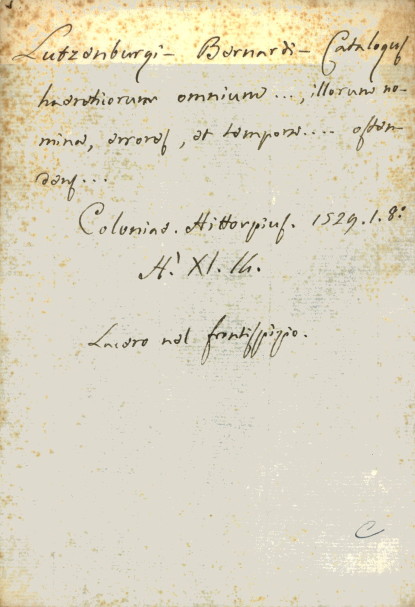 Lutzenburgi - Bernardi - Catalogus
haereticorum omnium ..., illorum no-
mina, errores, et tempora .... osten-
dens...
Coloniae. Hittorpius. 1529. 1. 8º
A. XI. 14.
Lacero nel frontispizio.
C